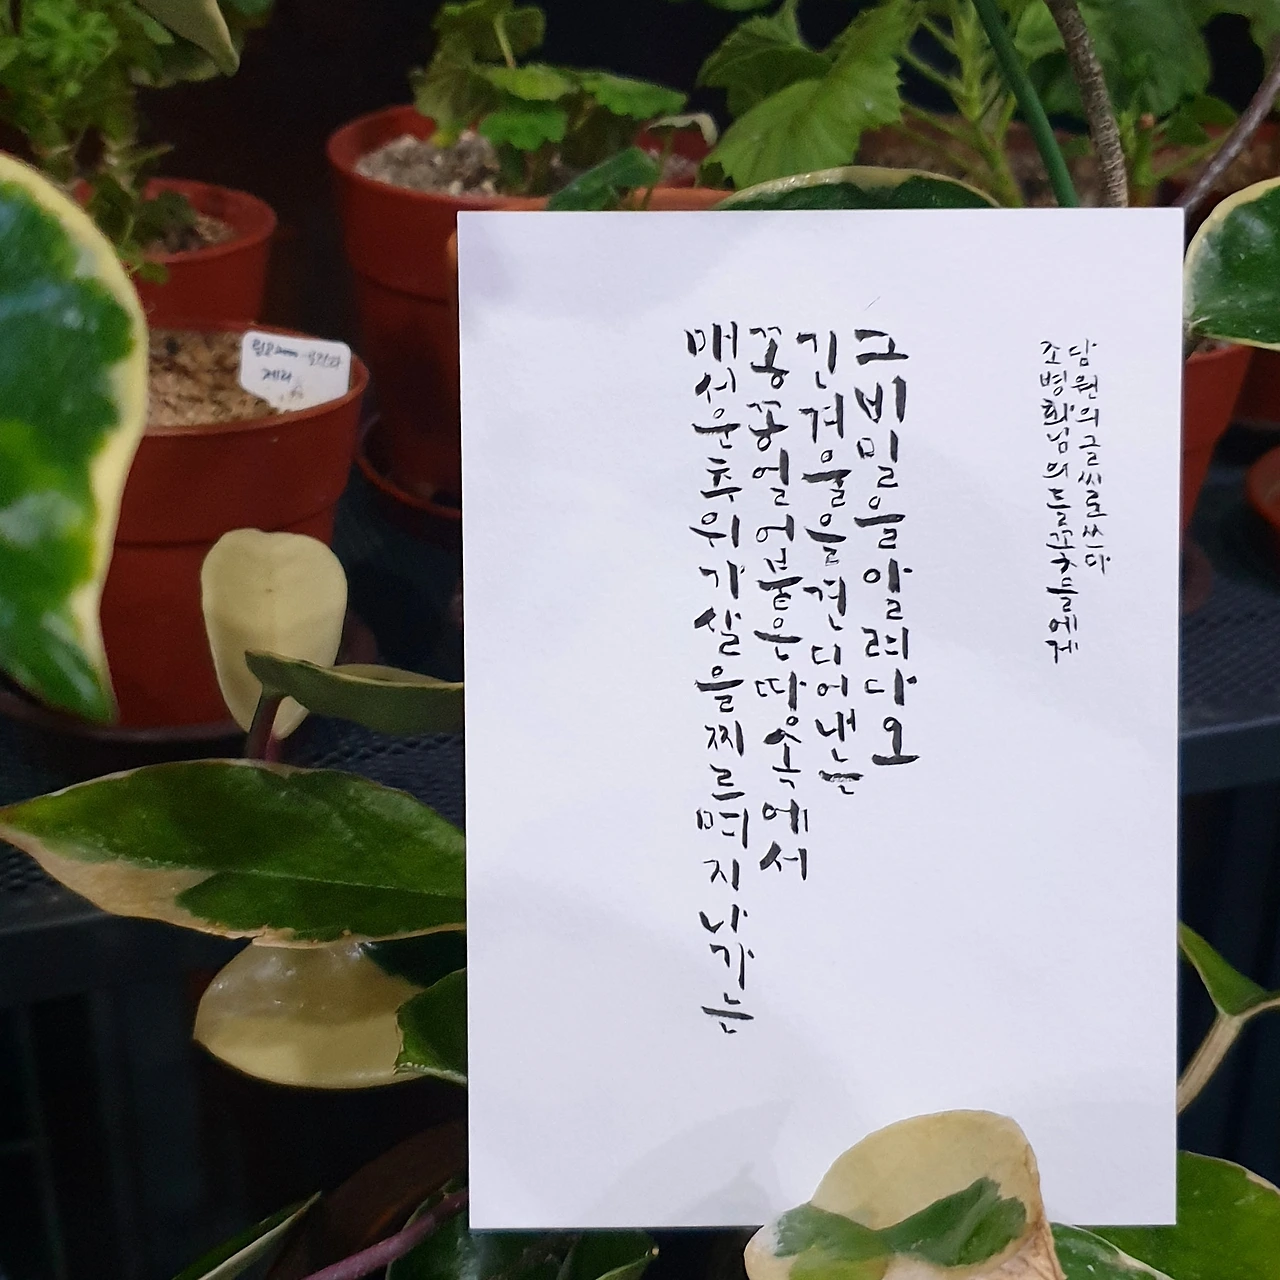 매서운추위가살을찌르며지나가는
꽁꽁얼어붙은땅속에서
긴겨울을견디어낸는
그비밀을알려다오
조병화님의들꽃들에게
담원의글씨로쓰다